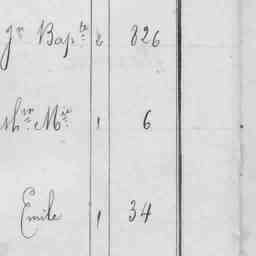 Jn Bapte 2 826
thre Mie 1 6
Emile 1 34